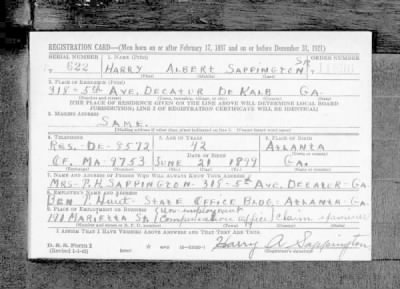 REGISTRATION CARD—(Men born on or after February 17, 1897 and on or before December 31, 1921)
SERIAL NUMBER 1. NAME (Print) ORDER NUMBER
622 HARRY ALBERT SAPPINGTON SR
(First) (Middle) (Last)
2. PLACE OF RESIDENCE (Print)
318-5th AVE. DECATUR DE KALB GA.
(Number and street) (Town, township, village, or city) (County) (State)
[THE PLACE OF RESIDENCE GIVEN ON THE LINE ABOVE WILL DETERMINE LOCAL BOARD
JURISDICTION; LINE 2 OF REGISTRATION CERTIFICATE WILL BE IDENTICAL]
3. MAILING ADDRESS
SAME.
[Mailing address if other than place indicated on line 2. If same insert word same]
4. TELEPHONE 5. AGE IN YEARS 6. PLACE OF BIRTH
RES. DE-8572 42 ATLANTA
DATE OF BIRTH (Town or county)
OF. MA-9753 JUNE 21 1899 GA.
7. NAME AND ADDRESS OF PERSON WHO WILL ALWAYS KNOW YOUR ADDRESS
MRS-P.H. SAPPINGTON-318-5th AVE. DECATUR-GA
8. EMPLOYER'S NAME AND ADDRESS
BEN T. HUIET-STATE OFFICE BLDG.-ATLANTA-GA.
9. PLACE OF EMPLOYMENT OR BUSINESS (Unemployment
191 MARIETTA ST. Compensation Office) Claim
I AFFIRM THAT I HAVE VERIFIED ABOVE ANSWERS AND THAT THEY ARE TRUE.
D. S. S. Form 1
(Revised 1-1-42) Harry A Sappington
(Registrant's signature)